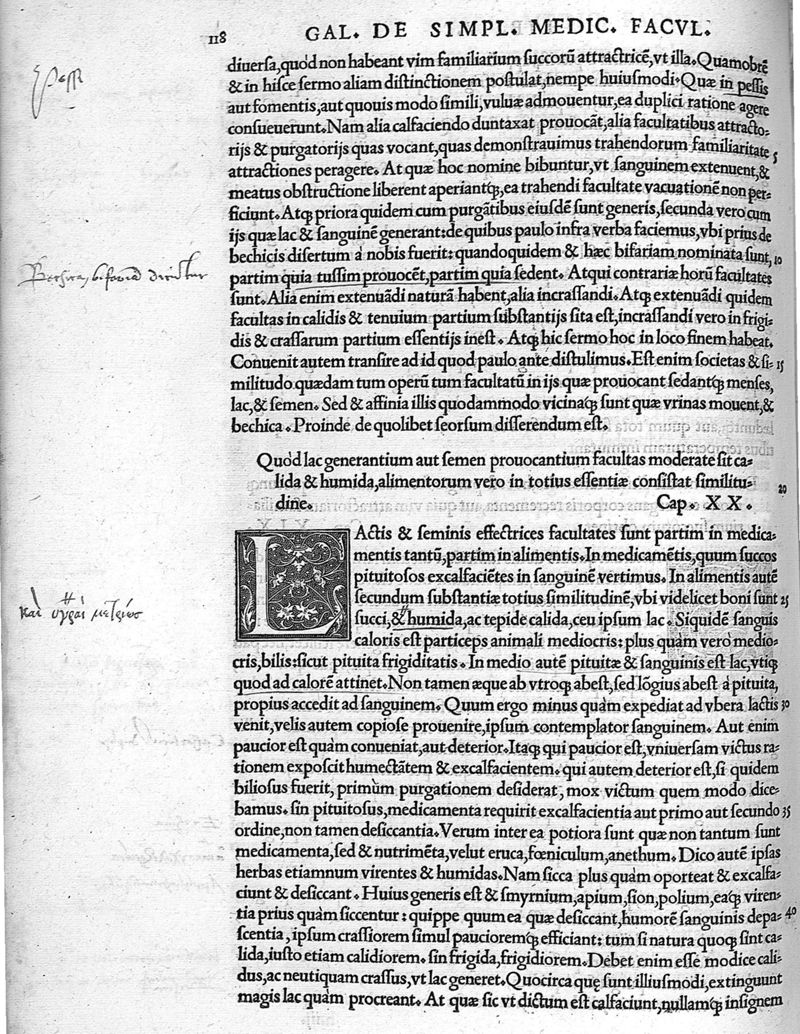 118 GAL. DE SIMPL. MEDIC. FACVL.
diuersa, quòd non habeant vim familiarium succorũ attractricẽ, vt illa. Quamobrẽ
& in hisce sermo aliam distinctionem postulat, nempe huiusmodi. Quæ in pessis
aut fomentis, aut quouis modo simili, vuluæ admouentur, ea duplici ratione agere
consueuerunt. Nam alia calfaciendo duntaxat prouocãt, alia facultatibus attracto-
rijs & purgatorijs quas vocant, quas demonstrauimus trahendorum familiaritate 5
attractiones peragere. At quæ hoc nomine bibuntur, vt sanguinem extenuent, &
meatus obstructione liberent aperiantq́, ea trahendi facultate vacuationẽ non per-
ficiunt. Atq́ priora quidem cum purgãtibus eiusdẽ sunt generis, secunda vero cum
ijs quæ lac & sanguinẽ generant: de quibus paulo infra verba faciemus, vbi prius de
bechicis disertum à nobis fuerit: quandoquidem & hæc bifariam nominata sunt, 10
partim quia tussim prouocẽt, partim quia sedent. Atqui contrariæ horũ facultates
sunt. Alia enim extenuãdi naturã habent, alia incrassandi. Atq́ extenuãdi quidem
facultas in calidis & tenuium partium substantijs sita est, incrassandi vero in frigi-
dis & crassarum partium essentijs inest. Atq́ hic sermo hoc in loco finem habeat.
Conuenit autem transire ad id quod paulo ante distulimus. Est enim societas & si- 15
militudo quædam tum operũ tum facultatũ in ijs quæ prouocant sedantq́ menses,
lac, & semen. Sed & affinia illis quodammodo vicinaq́ sunt quæ vrinas mouent, &
bechica. Proinde de quolibet seorsum disserendum est.
Quòd lac generantium aut semen prouocantium facultas moderate sit ca-
lida & humida, alimentorum vero in totius essentiæ consistat similitu- 20
dine. Cap. XX.
LActis & seminis effectrices facultates sunt partim in medica-
mentis tantũ, partim in alimentis. In medicamẽtis, quum succos
pituitosos excalfaciẽtes in sanguinẽ vertimus. In alimentis autẽ
secundum substantiæ totius similitudinẽ, vbi videlicet boni sunt 25
succi, & humida, ac tepide calida, ceu ipsum lac. Siquidẽ sanguis
caloris est particeps animali mediocris: plus quàm verò medio-
cris, bilis: sicut pituita frigiditatis. In medio autẽ pituitæ & sanguinis est lac, vtiq́
quod ad calorẽ attinet. Non tamen æque ab vtroq́ abest, sed lõgius abest à pituita,
propius accedit ad sanguinem. Quum ergo minus quàm expediat ad vbera lactis 30
venit, velis autem copiose prouenire, ipsum contemplator sanguinem. Aut enim
paucior est quàm conueniat, aut deterior. Itaq́ qui paucior est, vniuersam victus ra-
tionem exposcit humectãtem & excalfacientem. qui autem deterior est, si quidem
biliosus fuerit, primùm purgationem desiderat, mox victum quem modo dice-
bamus. sin pituitosus, medicamenta requirit excalfacientia aut primo aut secundo 35
ordine, non tamen desiccantia. Verum inter ea potiora sunt quæ non tantum sunt
medicamenta, sed & nutrimẽta, velut eruca, fœniculum, anethum. Dico autẽ ipsas
herbas etiamnum virentes & humidas. Nam sicca plus quàm oporteat & excalfa-
ciunt & desiccant. Huius generis est & smyrnium, apium, sion, polium, eaq́ viren-
tia prius quàm siccentur: quippe quum ea quæ desiccant, humorẽ sanguinis depa- 40
scentia, ipsum crassiorem simul paucioremq́ efficiant: tum si natura quoq́ sint ca-
lida, iusto etiam calidiorem. sin frigida, frigidiorem. Debet enim esse modice cali-
dus, ac neutiquam crassus, vt lac generet. Quocirca quę sunt illiusmodi, extinguunt
magis lac quàm procreant. At quæ sic vt dictum est calfaciunt, nullamq́ insignem
pessi
Bechica bifariã dicuntur
καὶ ὑγραὶ μετρίως